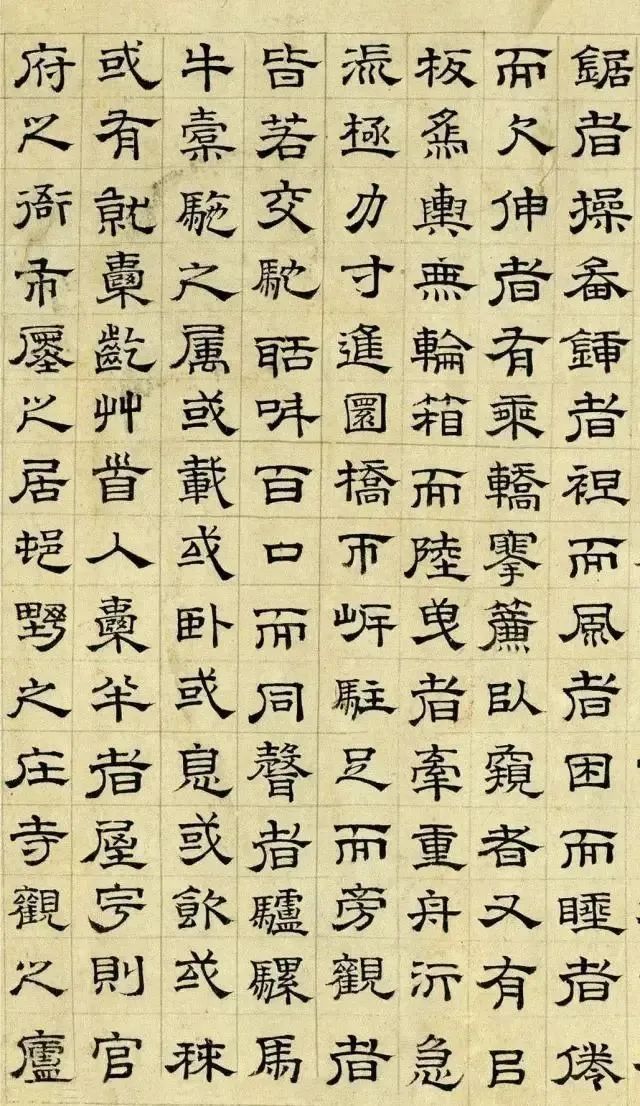 鋸者操畚鍤者袒而風者困而睡者倦
而欠伸者有乘轎搴簾㠯窺者又有㠯
板為輿無輪箱而陸曳者牽重舟泝急
流極力寸進圜橋帀岸駐足而旁觀者
皆若交駝聒呼百口而同聲者驢騾馬
牛橐駞之属或載或卧或息或飲或秣
或有就囊齕艸首入囊半者屋宇則官
府之衙市廛之居邨野之庄寺觀之廬